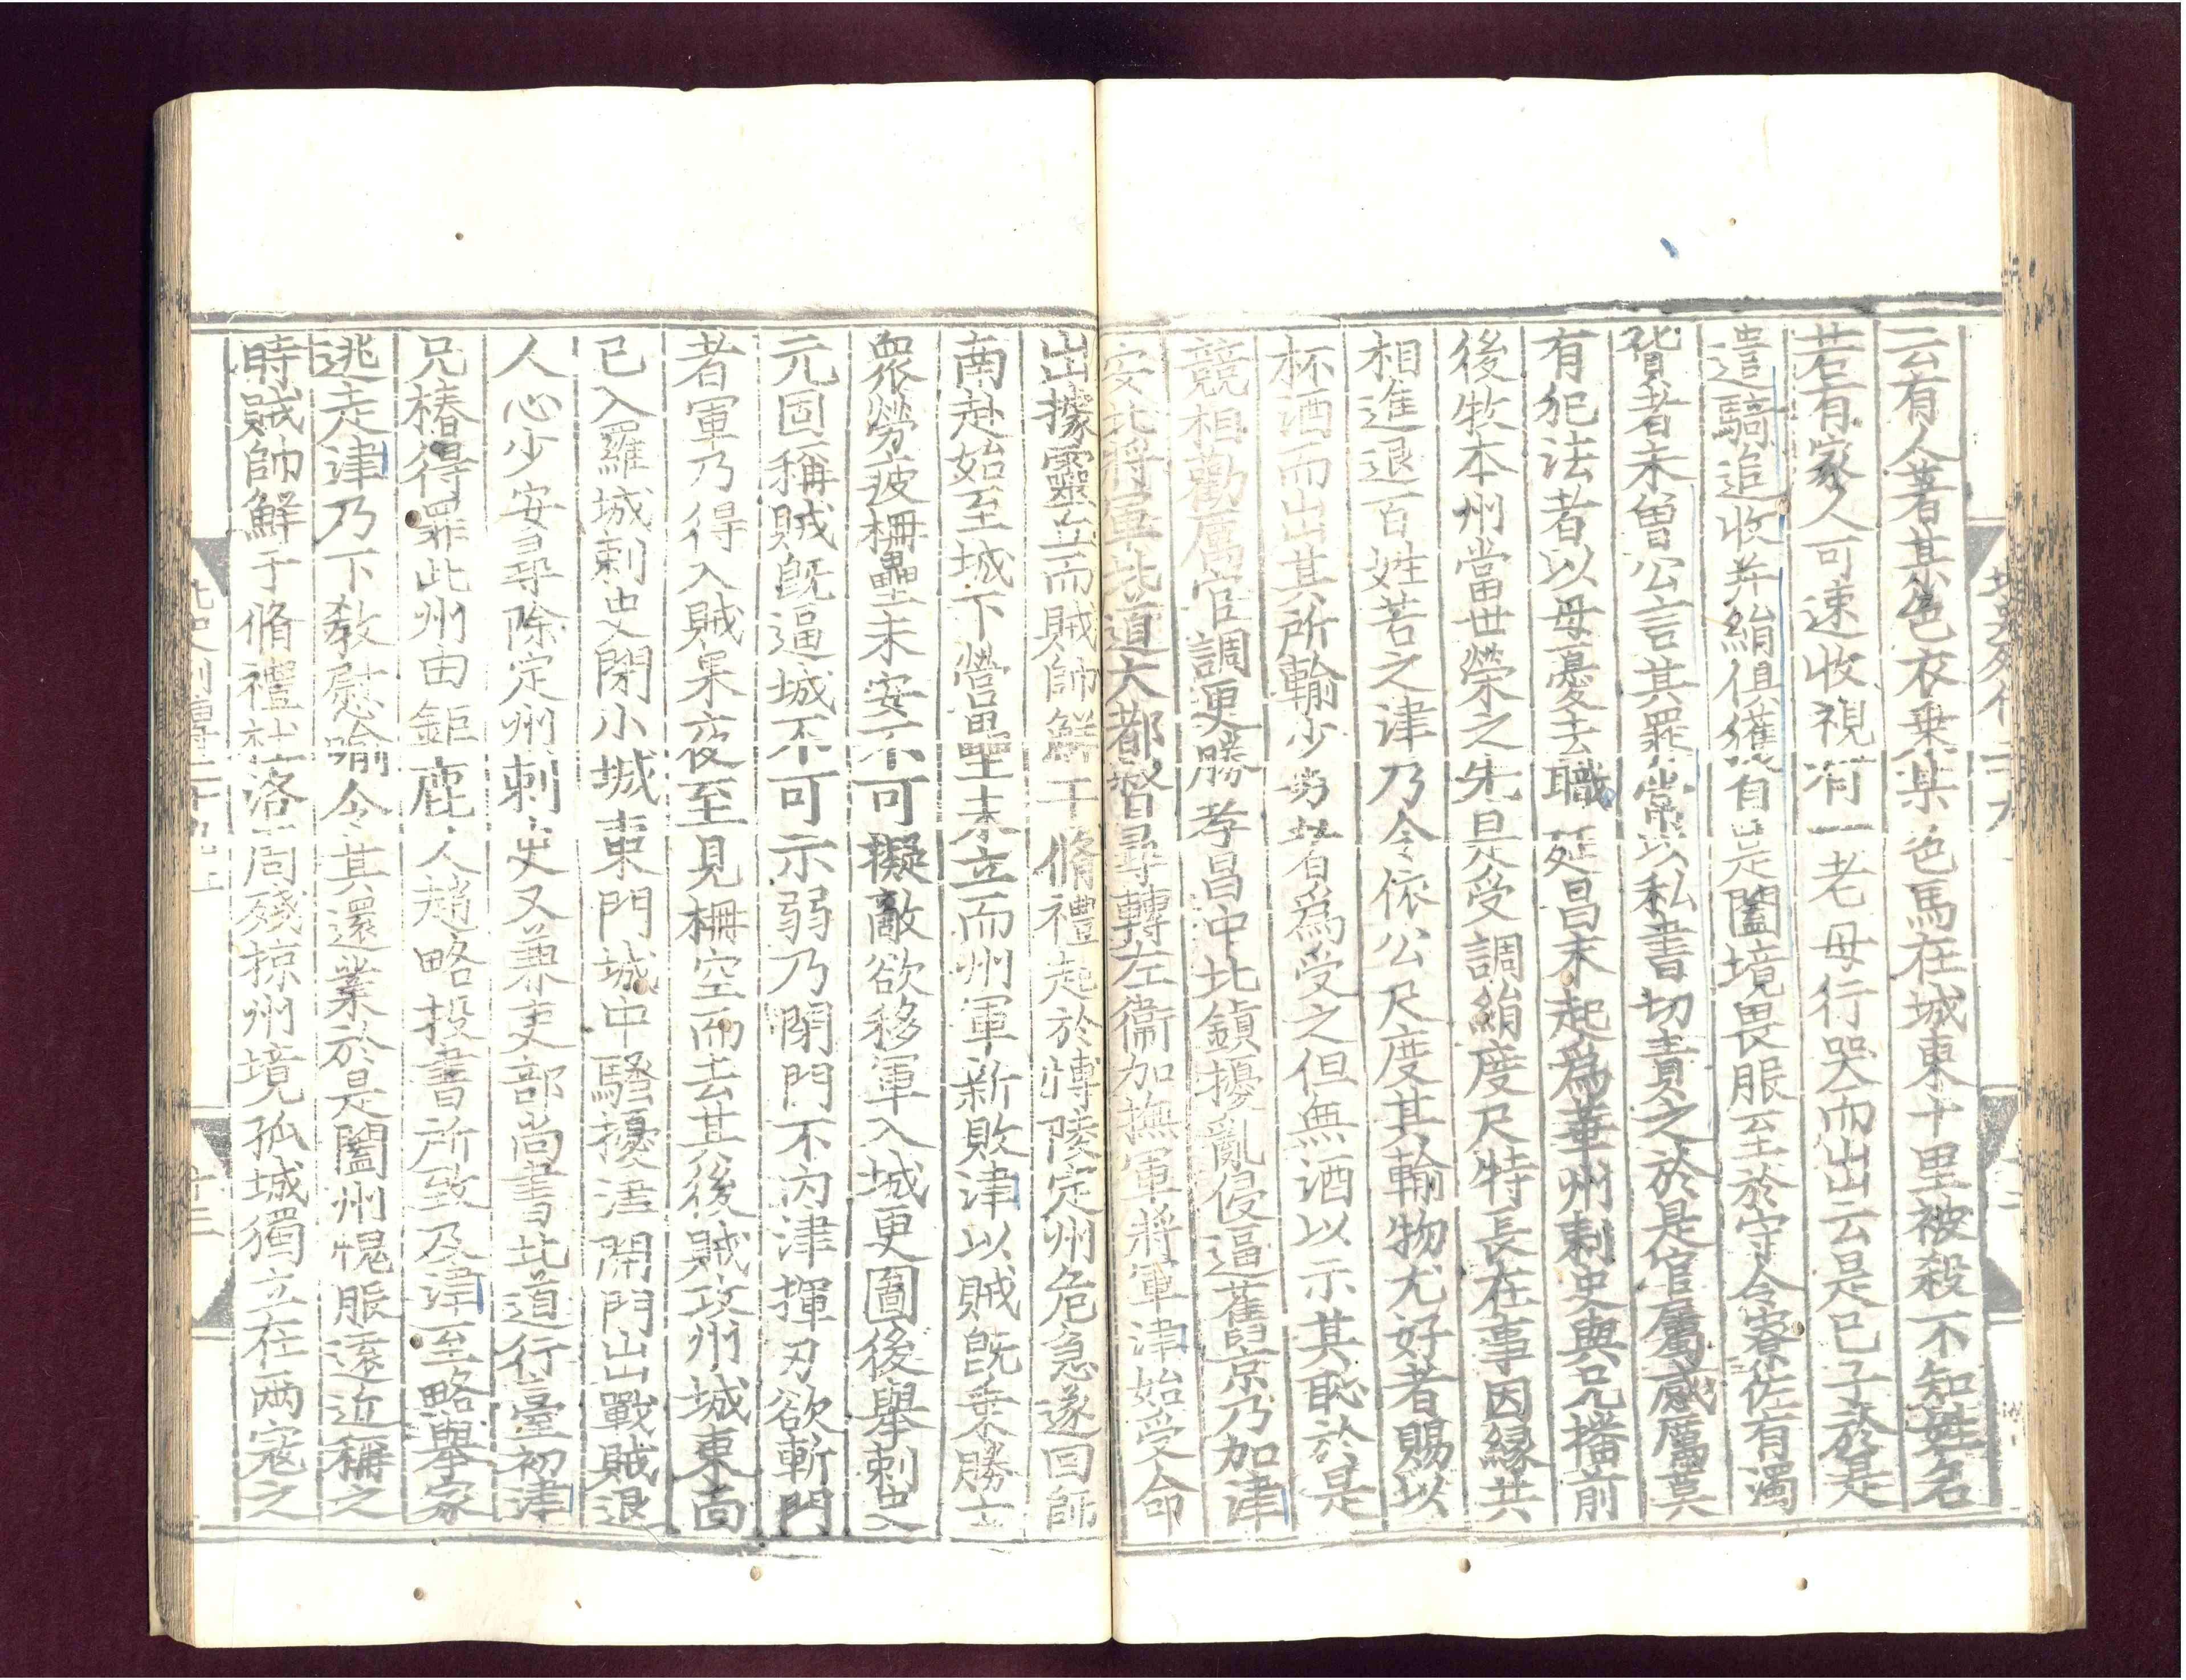 云有人著某色衣乗某色馬在城東十里被殺不知姓名
若有家人可速收視有一老母行哭而出云是已子於是
遣騎追收并絹俱獲自是闔境畏服至於守令寮佐有濁
貨者未曽公言其罪常以私書切責之於是官屬感厲莫
有犯法者以母憂去職延昌末起爲華州刺史與兄播前
後牧本州當世榮之先是受調絹度尺特長在事因縁共
相進退百姓苦之津乃令依公尺度其輸物尤好者賜以
杯酒而出其所輸少劣者爲受之但無酒以示其恥於是
競相勸厲官調更勝孝昌中北鎮擾亂侵逼舊京乃加津
安北將軍北道大都督尋轉左衞加撫軍將軍津始受命
出據靈丘而賊帥鮮于脩禮起於博陵定州危急遂回師
南赴始至城下營壘未立而州軍新敗津以賊旣乗勝士
衆勞疲柵壘未安不可擬敵欲移軍入城更圖後舉刺史
元固稱賊旣逼城不可示弱乃閉門不内津揮刃欲斬門
者軍乃得入賊果夜至見柵空而去其後賊攻州城東面
已入羅城刺史閉小城東門城中騷擾津開門出戰賊退
人心少安尋除定州刺史又兼吏部尚書北道行臺初津
兄椿得罪此州由鉅鹿人趙略投書所致及津至略舉家
逃走津乃下教慰喻令其還業於是闔州愧服遠近稱之
時賊帥鮮于脩禮杜洛周殘掠州境孤城獨立在兩寇之